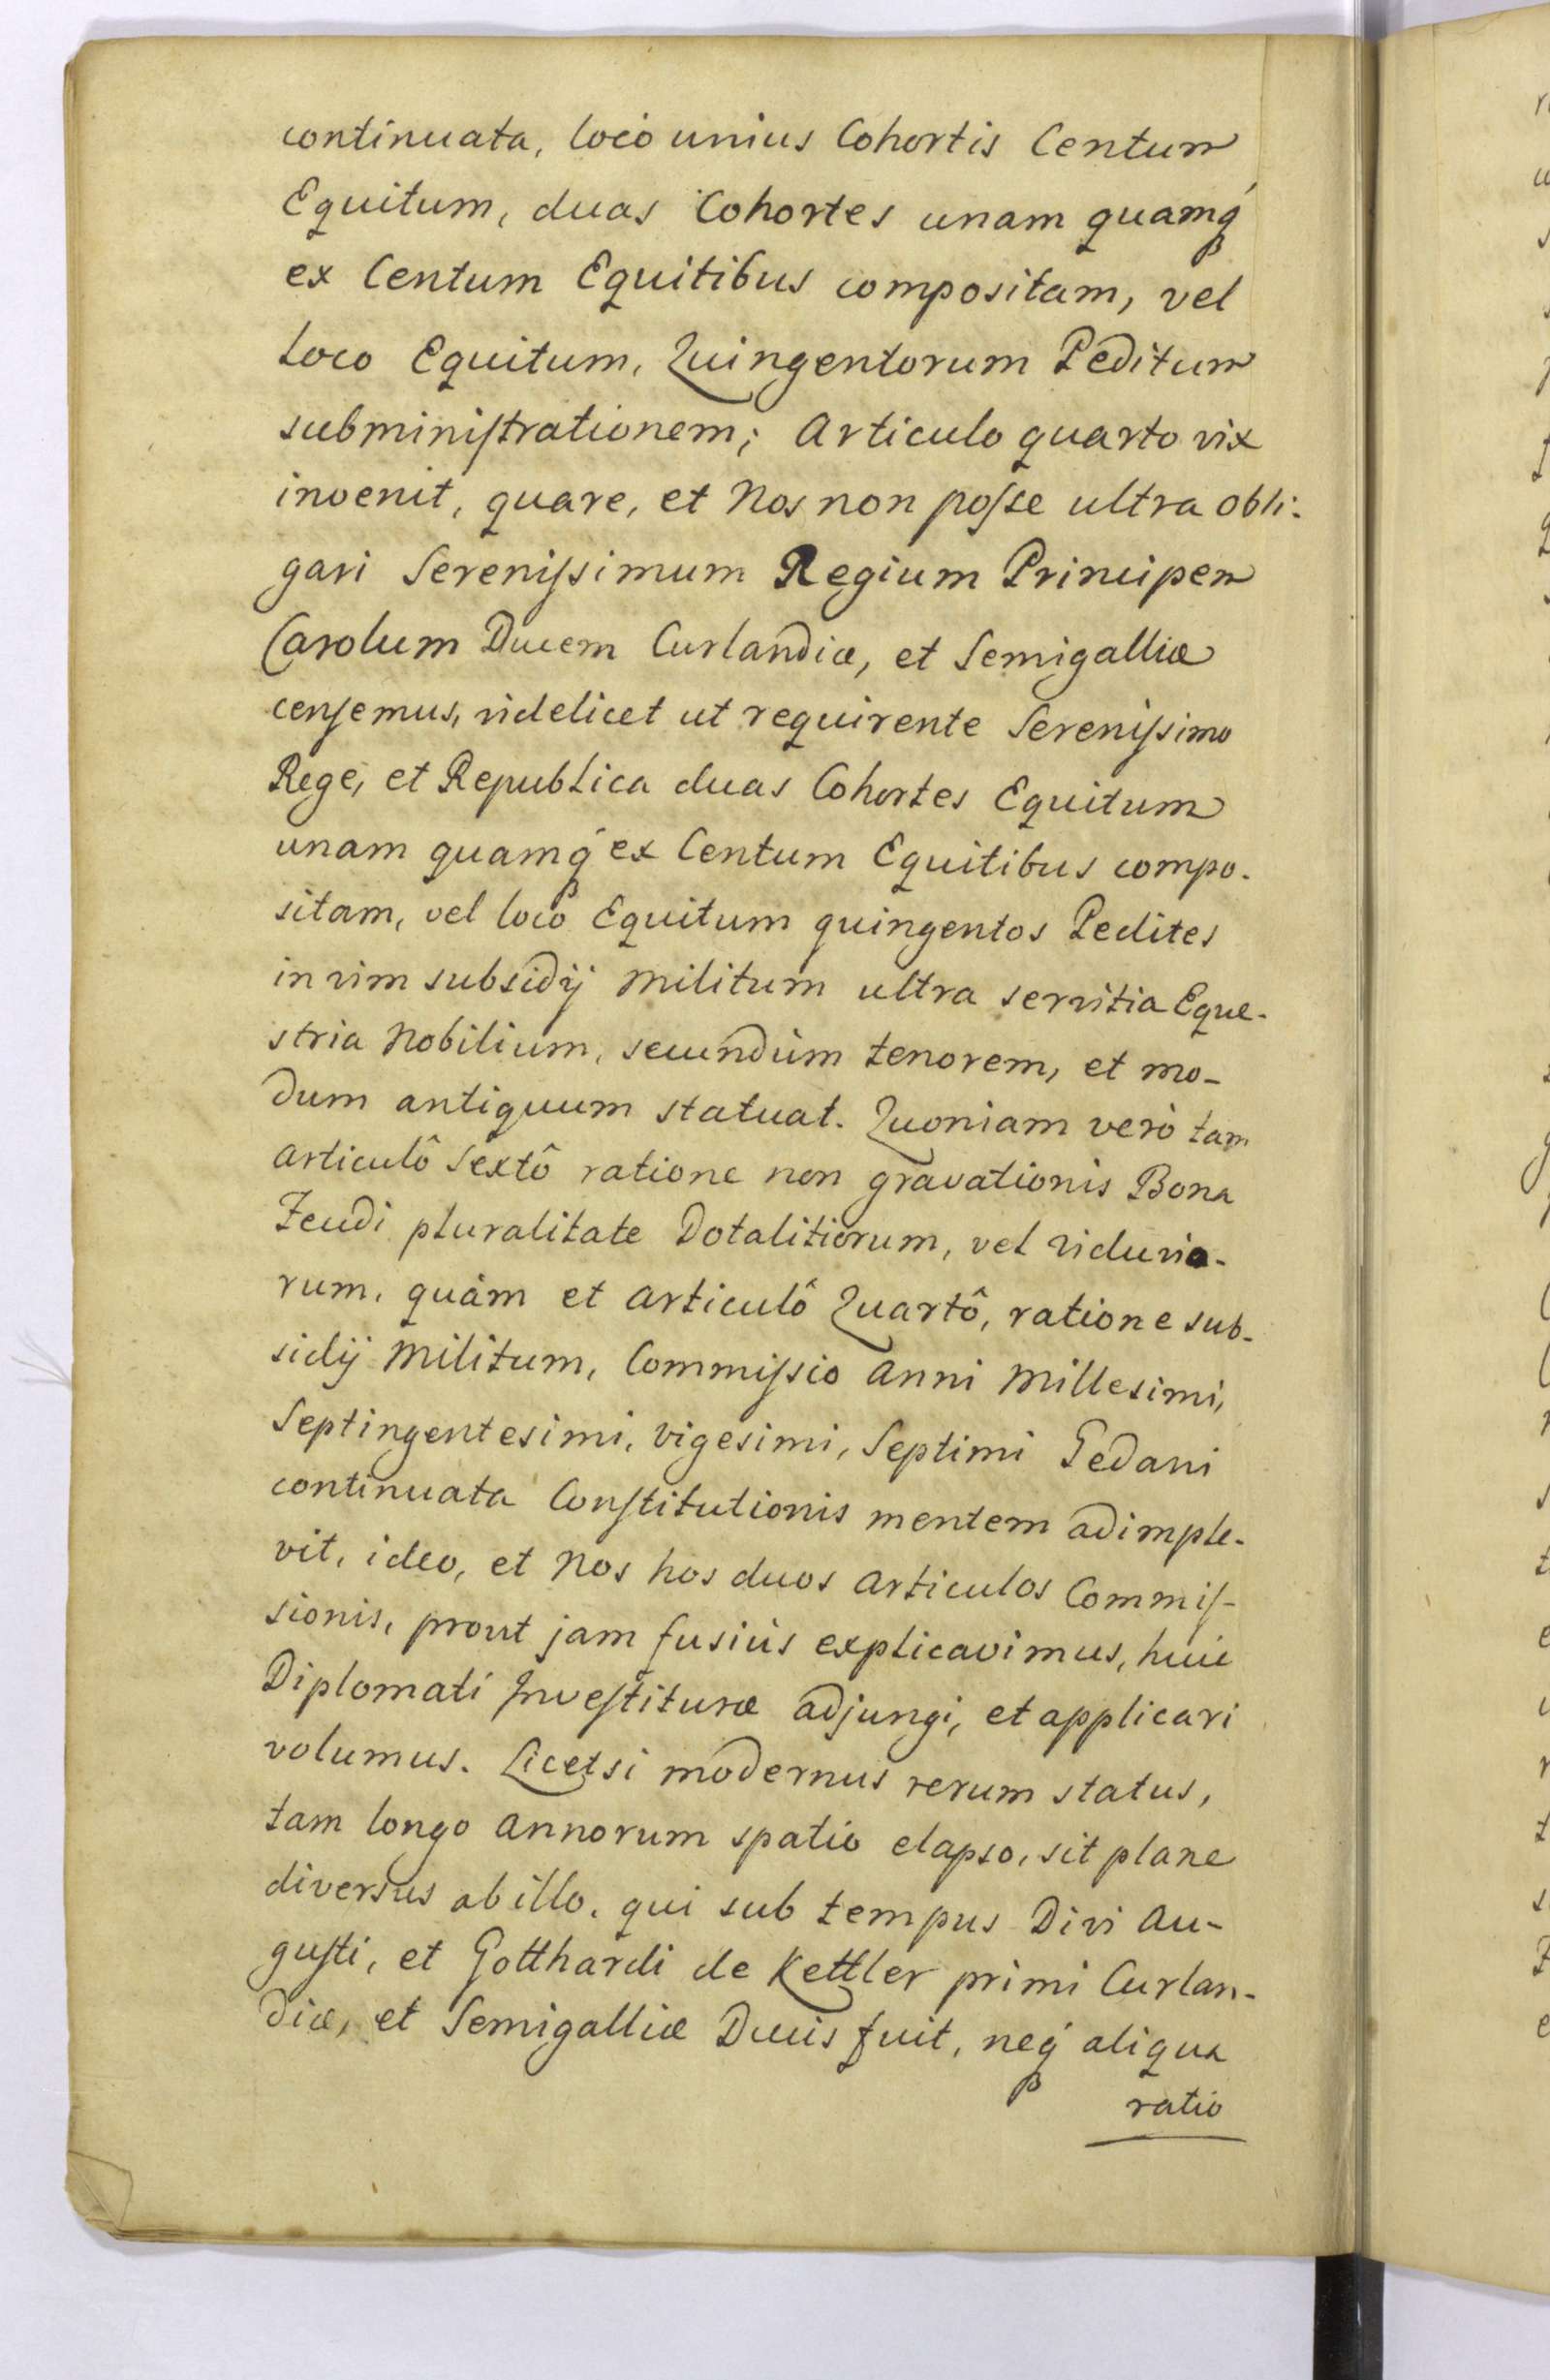 continuata, loco unius Cohortis Centum
Equitum, duas Cohortes unam quamq́
ex Centum Equitibus compositam, vel
Loco Equitum, Quingentorum Peditum
subminiſtrationem; Articulo quarto vix
invenit, quare, et Nos non poſse ultra obli:
gari Sereniſsimum Regium Principem
Carolum Ducem Curlandiæ, et Semigalliæ
cenſemus, videlicet ut requirente Sereniſsimo
Rege, et Republica duas Cohortes Equitum
unam quamq́ ex Centum Equitibus compo-
sitam, vel loco Equitum quingentos Pedites
in vim subsidij Militum ultra servitia Eque-
stria Nobilium, secundùm tenorem, et mo-
dum antiquum statuat. Quoniam verò tam
Articulô Sextô ratione non gravationis Bona
Feudi pluralitate Dotalitiorum, vel viduvia-
rum, quàm et Articulô Quartô, ratione sub-
sidij Militum, Commiſsio Anni Millesimi,
Septingentesimi, Vigesimi, Septimi Gedani
continuata Conſtitutionis mentem adimple-
vit, ideo, et Nos hos duos Articulos Commiſ-
sionis, prout jam fusiùs explicavimus, huic
Diplomati Inveſtituræ adjungi, et applicari
volumus. Licetsi modernus rerum status,
tam longo Annorum spatio elapso, sit plane
diversus ab illo, qui sub tempus Divi Au-
guſti, et Gotthardi de Kettler primi Curlan-
diæ, et Semigalliæ Ducis fuit, neq́ aliqua
ratio